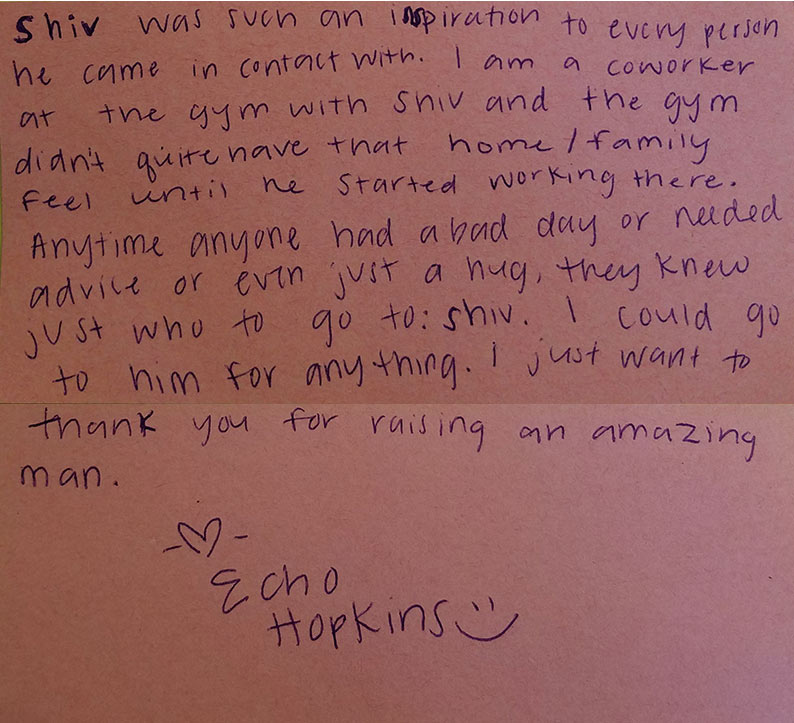 Shiv was such an inspiration to every person
he came in contact with. I am a coworker
at the gym with Shiv and the gym
didn't quite have that home/family
feel until he started working there.
Anytime anyone had a bad day or needed
advice or even just a hug, they knew
just who to go to: Shiv. I could go
to him for anything. I just want to
thank you for raising an amazing
man.
-♡-
Echo
Hopkins :)